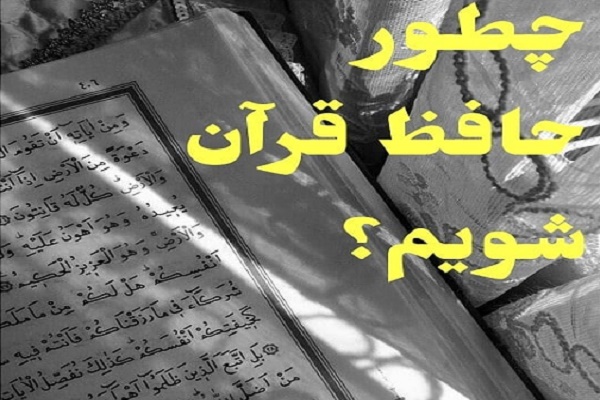 چطور
حافظ قرآن
شویم؟
وَمِنْ آيَاتِهِ أَنْ تَقُومَ
دَعْوَةً مِنَ الْأَرْضِ إِذَا
وَالْأَرْضِ كُلٌّ لَهُ قَانِتُونَ
يُعِيدُهُ وَهُوَ أَهْوَنُ عَلَيْهِ
وَالْأَرْضِ وَهُوَ الْعَزِيزُ الْحَكِيمُ
أَنْفُسِكُمْ هَلْ لَكُمْ مِنْ مَا
شُرَكَاءَ فِي مَا رَزَقْنَاكُمْ فَأَنْتُمْ فِيهِ
كَخِيفَتِكُمْ أَنْفُسَكُمْ كَذَلِكَ نُفَصِّلُ الْآيَاتِ
بَلِ اتَّبَعَ الَّذِينَ ظَلَمُوا
مَنْ أَضَلَّ اللَّهُ